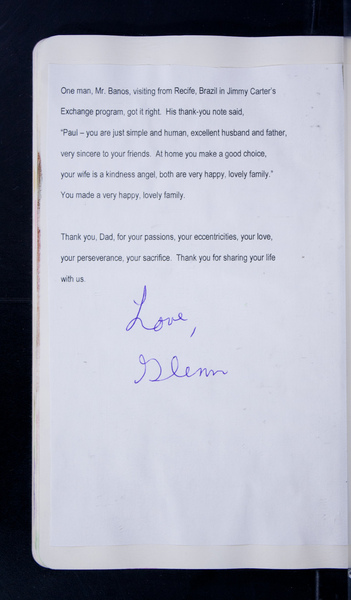 One man, Mr. Banos, visiting from Recife, Brazil in Jimmy Carter's
Exchange program, got it right.  His thank-you note said,
"Paul – you are just simple and human, excellent husband and father,
very sincere to your friends.  At home you make a good choice,
your wife is a kindness angel, both are very happy, lovely family."
You made a very happy, lovely family.
Thank you, Dad, for your passions, your eccentricities, your love,
your perseverance, your sacrifice.  Thank you for sharing your life
with us.
Love,
Glenn